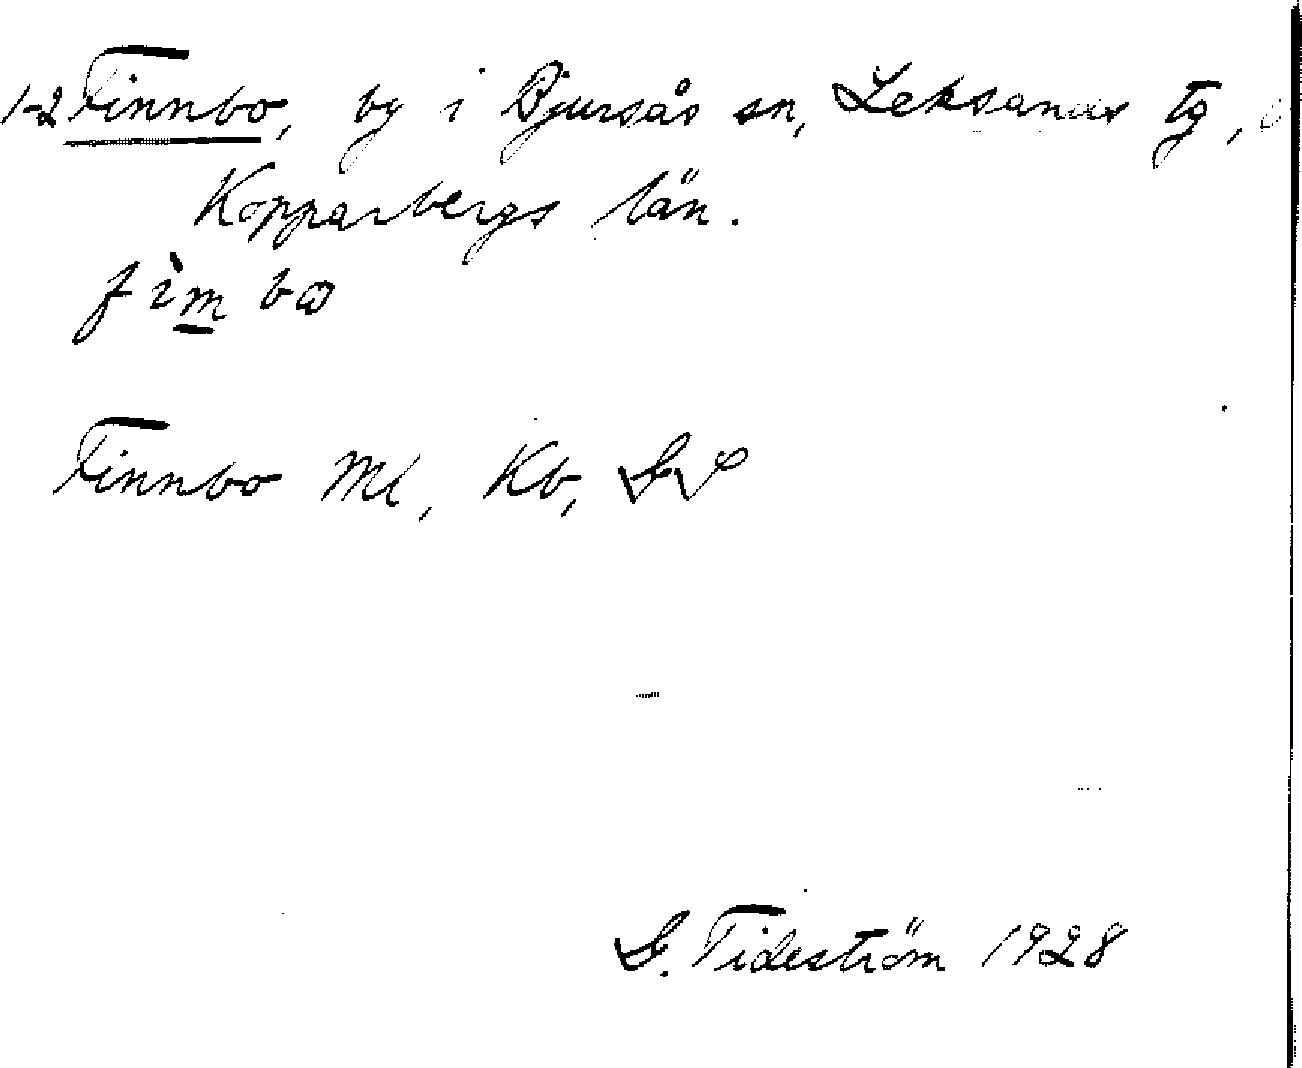 1-2 Finnbo, by i Bjursås sn, Leksands tg,
Kopparbergs län.
fìm bω
Finnbo Ml, Kb, GS
G. Tideström 1928